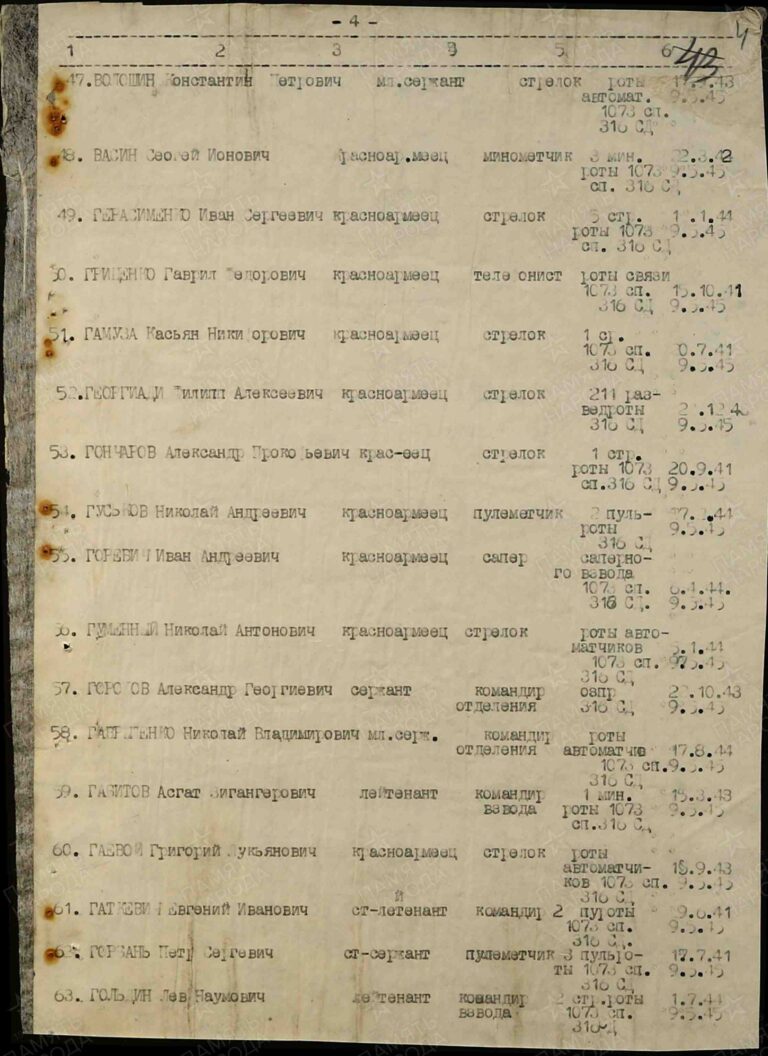 - 4 -
4
1 2 3 4 5 6
43
47. ВОЛОШИН Константин Петрович мл.сержант стрелок роты 17.9.43
автомат. 9.5.45
1073 сп.
316 СД
48. ВАСИН Сергей Ионович красноар.меец минометчик 3 мин. 22.3.42
роты 1073 9.5.45
сп. 316 СД
49. ГЕРАСИМЕНКО Иван Сергеевич красноармеец стрелок 5 стр. 1.44
роты 1073 9.5.45
сп. 316 СД
50. ГРИЦЕНКО Гаврил Федорович красноармеец телефонист роты связи
1073 сп. 15.10.41
316 СД 9.5.45
51. ГАМУЗА Касьян Никифорович красноармеец стрелок 1 ср.
1073 сп. 0.7.41
316 СД 9.5.45
52. ГЕОРГИАДИ Филипп Алексеевич красноармеец стрелок 211 раз-
ведроты
316 СД 9.5.45
53. ГОНЧАРОВ Александр Прокофьевич крас-еец стрелок 1 стр.
роты 1073 20.9.41
сп.316 СД 9.5.45
54. ГУСЬКОВ Николай Андреевич красноармеец пулеметчик 2 пуль-
роты 9.5.45
316 СД
55. Иван Андреевич красноармеец сапер саперно-
го взвода
1073 сп. 6.4.44.
316 СД. 9.5.45
56. ГУМЕННЫЙ Николай Антонович красноармеец стрелок роты авто-
матчиков 1.44
1073 сп. 975.45
316 СД
57. Александр Георгиевич сержант командир озпр 10.43
отделения 316 СД 9.5.45
58. Николай Владимирович мл.серж. командир роты
отделения автоматчив 17.8.44
1073 сп. 9.5.45
316 СД
59. ГАБИТОВ Асгат Зигангерович лейтенант командир 1 мин. 15.3.43
взвода роты 1073 9.5.45
сп.316 СД
60. ГАЕВОЙ Григорий Лукьянович красноармеец стрелок роты
автоматчи- 15.9.43
ков 1073 сп. 9.5.45
316 СД
й
61. Евгений Иванович ст-летенант командир 2 пуроты 9.6.41
1073 сп. 9.5.45
316 СД.
62. ГОРБАНЬ Петр Сергевич ст-сержант пулеметчик 3 пульро- 17.7.41
ты 1073 сп. 9.5.45
316 СД
63. ГОЛЬДИН Лев Наумович лейтенант командир 2 стр.роты 1.7.44
взвода 1073 сп. 9.5.45
316 Д